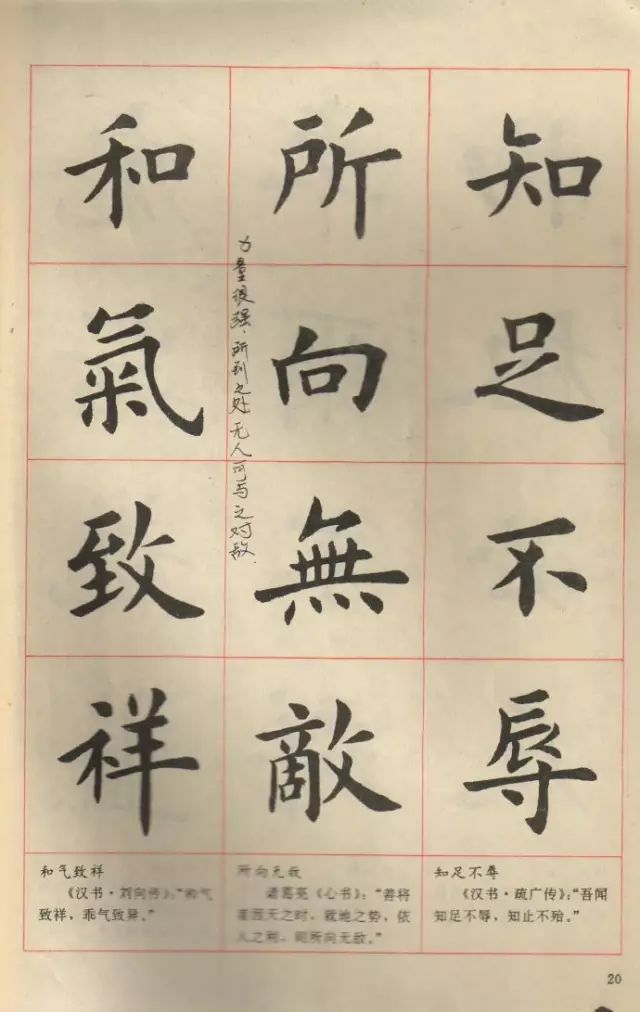 知足不辱
所向無敵
力量很强，所到之处无人可与之对敌.
和氣致祥
知足不辱
《汉书·疏广传》：“吾闻
知足不辱，知止不殆。”
所向无敌
诸葛亮《心书》：“善将
者因天之时，就地之势，依
人之利，则所向无敌。”
和气致祥
《汉书·刘向传》：“和气
致祥，乖气致异。”
20